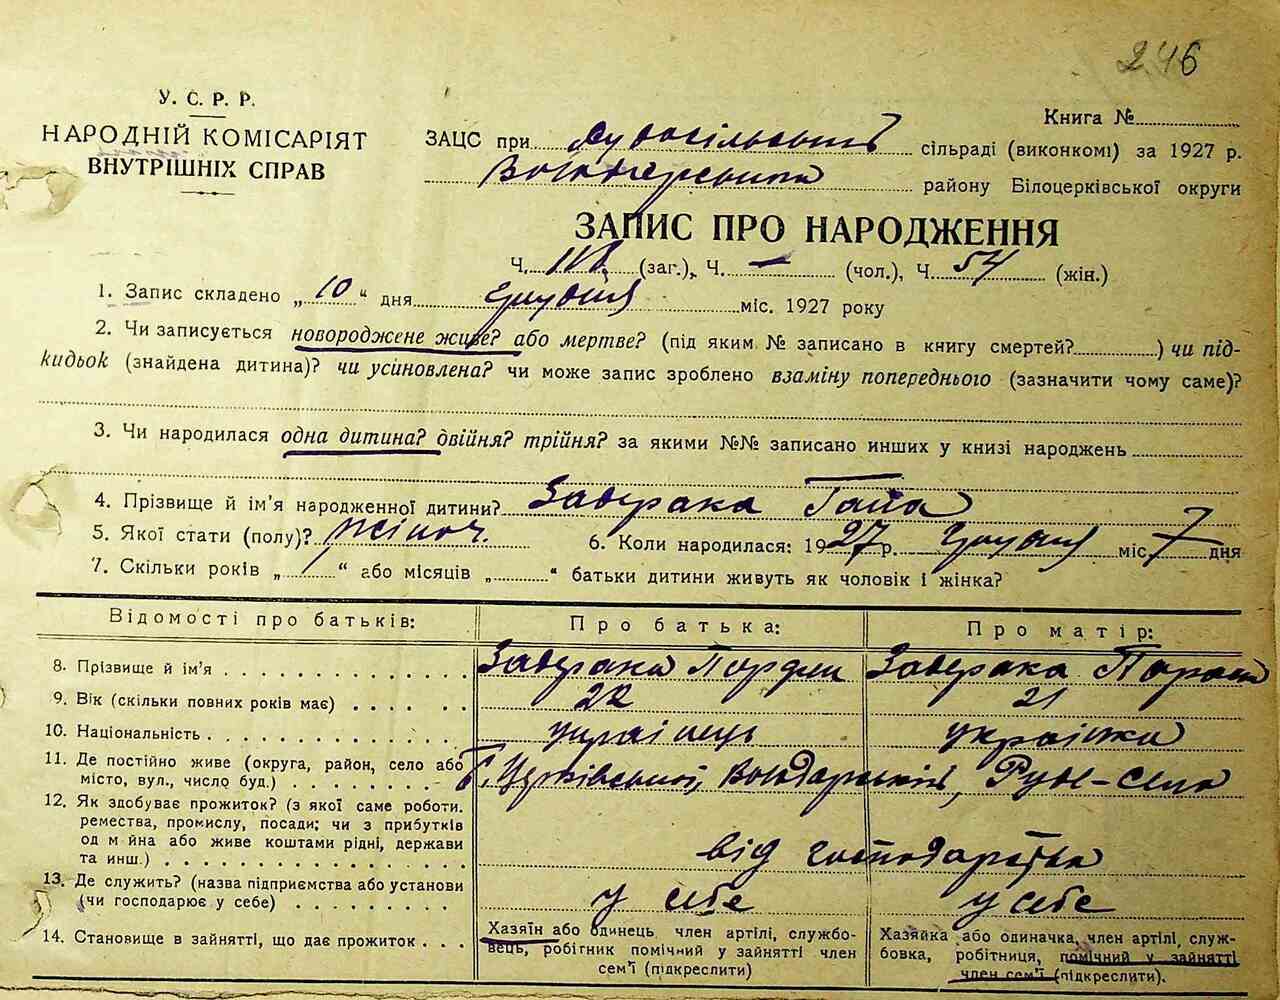 246
У. С. Р. Р.
НАРОДНІЙ КОМІСАРІЯТ
ВНУТРІШНІХ СПРАВ
Книга №
ЗАЦС при сільраді (виконкомі) за 1927 р.
району Білоцерківської округи
ЗАПИС ПРО НАРОДЖЕННЯ
Ч. (заг.), Ч. — (чол.), Ч. 54 (жін.)
1. Запис складено „10" дня Грудня міс. 1927 року
2. Чи записується новороджене живе? або мертве? (під яким № записано в книгу смертей?) чи під-
кидьок (знайдена дитина)? чи усиновлена? чи може запис зроблено взаміну попереднього (зазначити чому саме)?
3. Чи народилася одна дитина? двійня? трійня? за якими №№ записано инших у книзі народжень
4. Прізвище й ім'я народженної дитини? Заверака
5. Якої стати (полу)? жіноч. 6. Коли народилася: 1927 р. Грудня міс. 7 дня
7. Скільки років „ " або місяців „ " батьки дитини живуть як чоловік і жінка?
Відомості про батьків: Про батька: Про матір:
8. Прізвище й ім'я Заверака Заверака
9. Вік (скільки повних років має) 22 21
10. Національність українець українка
11. Де постійно живе (округа, район, село або
місто, вул., число буд.) Б. Церківської, Володарський, Руде-село
12. Як здобуває прожиток? (з якої саме роботи.
ремества, промислу, посади; чи з прибутків
од майна або живе коштами рідні, держави
та инш.) від господарства
13. Де служить? (назва підприємства або установи
(чи господарює у себе) у себе у себе
14. Становище в зайнятті, що дає прожиток
Хазяїн або одинець, член артілі, службо-
вець, робітник помічний у зайнятті член
сем'ї (підкреслити)
Хазяйка або одиначка, член артілі, служ-
бовка, робітниця, помічний у зайнятті
член сем'ї (підкреслити).